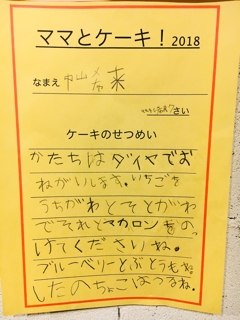 ママとケーキ！2018
なまえ 中山 来
さい
ケーキのせつめい
かたちはダイヤでお
ねがいします。いちごを
うちがわとそとがわ
でそれとマカロンをのっ
けてくださいね。
ブルーベリーとぶどうもね
したのちょこはうるね。